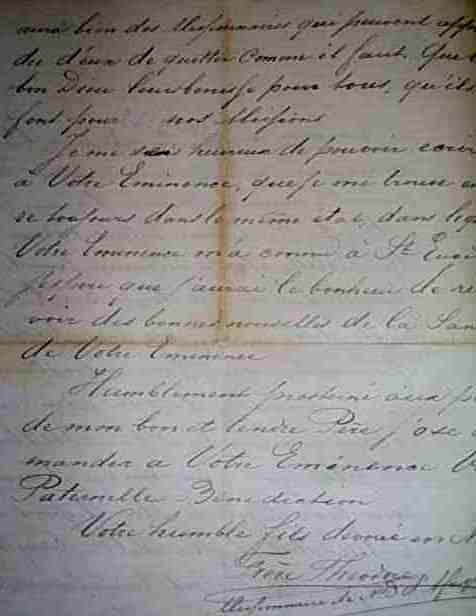 aura bien des Missionnaires qui peuvent
d'eux de quitter comme il faut. Que
bon Dieu leur bonesse pour tous, qu'ils
font pour nos Missions
Je me suis heureux de pouvoir
à Votre Eminence, que je me trouve
re toujours dans le même etat, dans
Votre Eminence m'a connu à St
J'espère que j'aurai le bonheur de re
voir des bonnes nouvelles de la San
de Votre Eminence
Humblement prosterné aux
de mon bon et tendre Père j'ose
mander a Votre Eminence
Paternelle Bénédiction
Votre humble fils devoué en
Frère Théodore
Missionnaire de N. D.